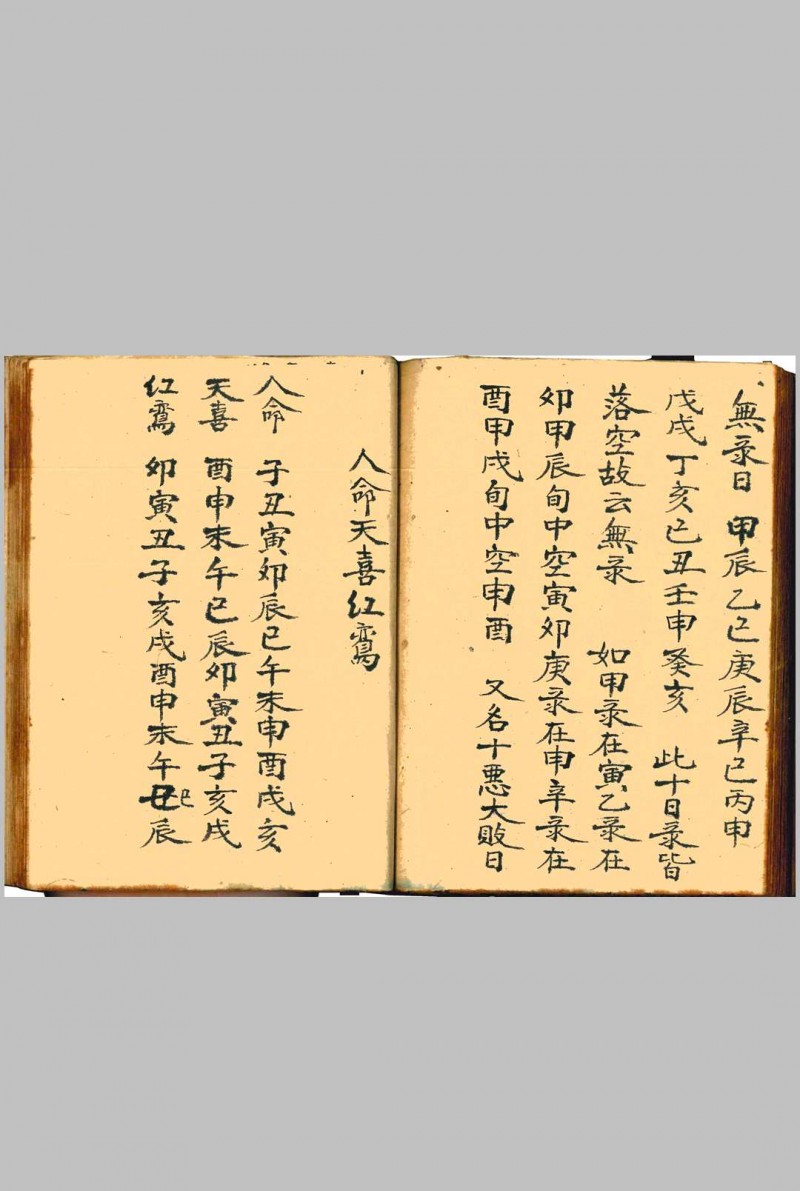 無录日 甲辰乙巳庚辰辛巳丙申
戊戌丁亥己丑壬申癸亥 此十日录皆
落空故云無录 如甲录在寅乙录在
卯甲辰旬中空寅卯庚录在申辛录在
酉甲戌旬中空申酉 又名十悪大敗日
人命天喜红鸾
人命 子丑寅卯辰巳午未申酉戌亥
天喜 酉申未午巳辰卯寅丑子亥戌
红鸾 卯寅丑子亥戌酉申未午丑巳辰